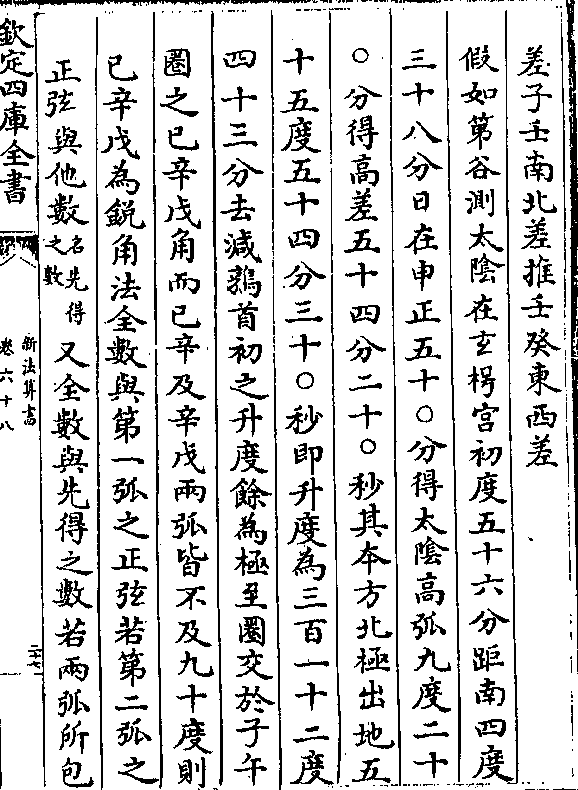 差子壬南北差推壬癸東西差
假如第谷測太陰在玄枵宮初度五十六分距南四度
三十八分日在申正五十〇分得太陰高弧九度二十
〇分得高差五十四分二十〇秒其本方北極出地五
十五度五十四分三十〇秒即升度為三百一十二度
四十三分去減鶉首初之升度餘為極至圈交於子午
圈之已辛戊角而已辛及辛戊兩弧皆不及九十度則
已辛戊為銳角法全數與第一弧之正弦若第二弧之
正弦與他數名先得之數又全數與先得之數若兩弧所包
欽定四庫全書
新法算書
卷六十八
二十七